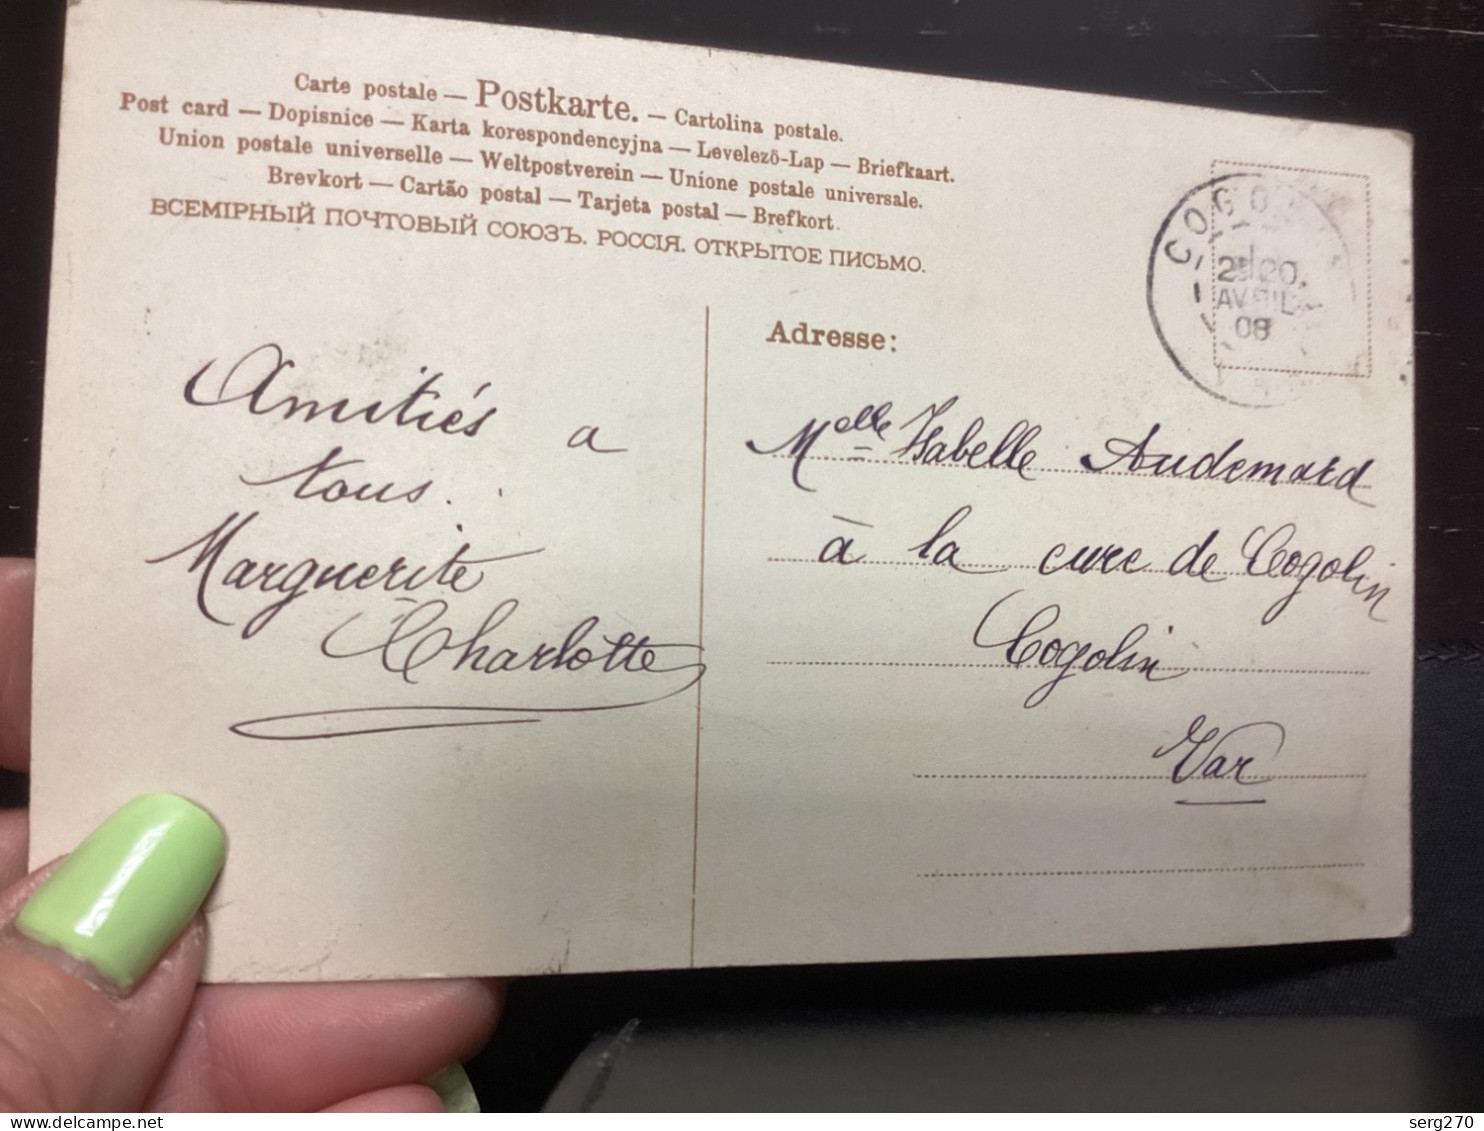 Carte postale — Postkarte. — Cartolina postale.
Post card — Dopisnice — Karta korespondencyjna — Levelező-Lap — Briefkaart.
Union postale universelle — Weltpostverein — Unione postale universale.
Brevkort — Cartão postal — Tarjeta postal — Brefkort.
ВСЕМІРНЫЙ ПОЧТОВЫЙ СОЮЗЪ. РОССІЯ. ОТКРЫТОЕ ПИСЬМО.
COGO
20
AVRIL
08
Amitiés a
tous.
Marguerite
Charlotte
Adresse:
Melle Isabelle Audemard
à la cure de Cogolin
Cogolin
Var
serg270